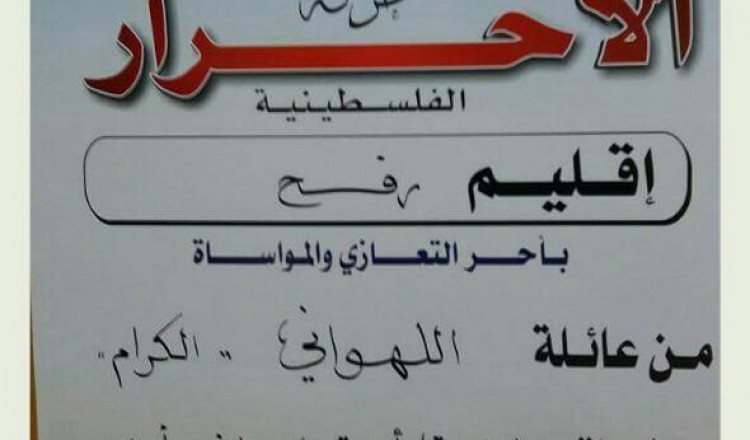 حركة
الأحرار
الفلسطينية
إقليم رفح
بأحر التعازي والمواساة
من عائلة اللهواني " الكرام "